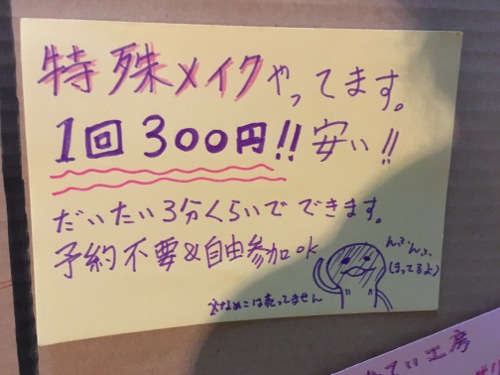 特殊メイクやってます。
1回300円!!安い!!
だいたい3分くらいでできます。
予約不要&自由参加OK
んふんふ
(まってるよ)
※なめこは売ってません
てぃ工房